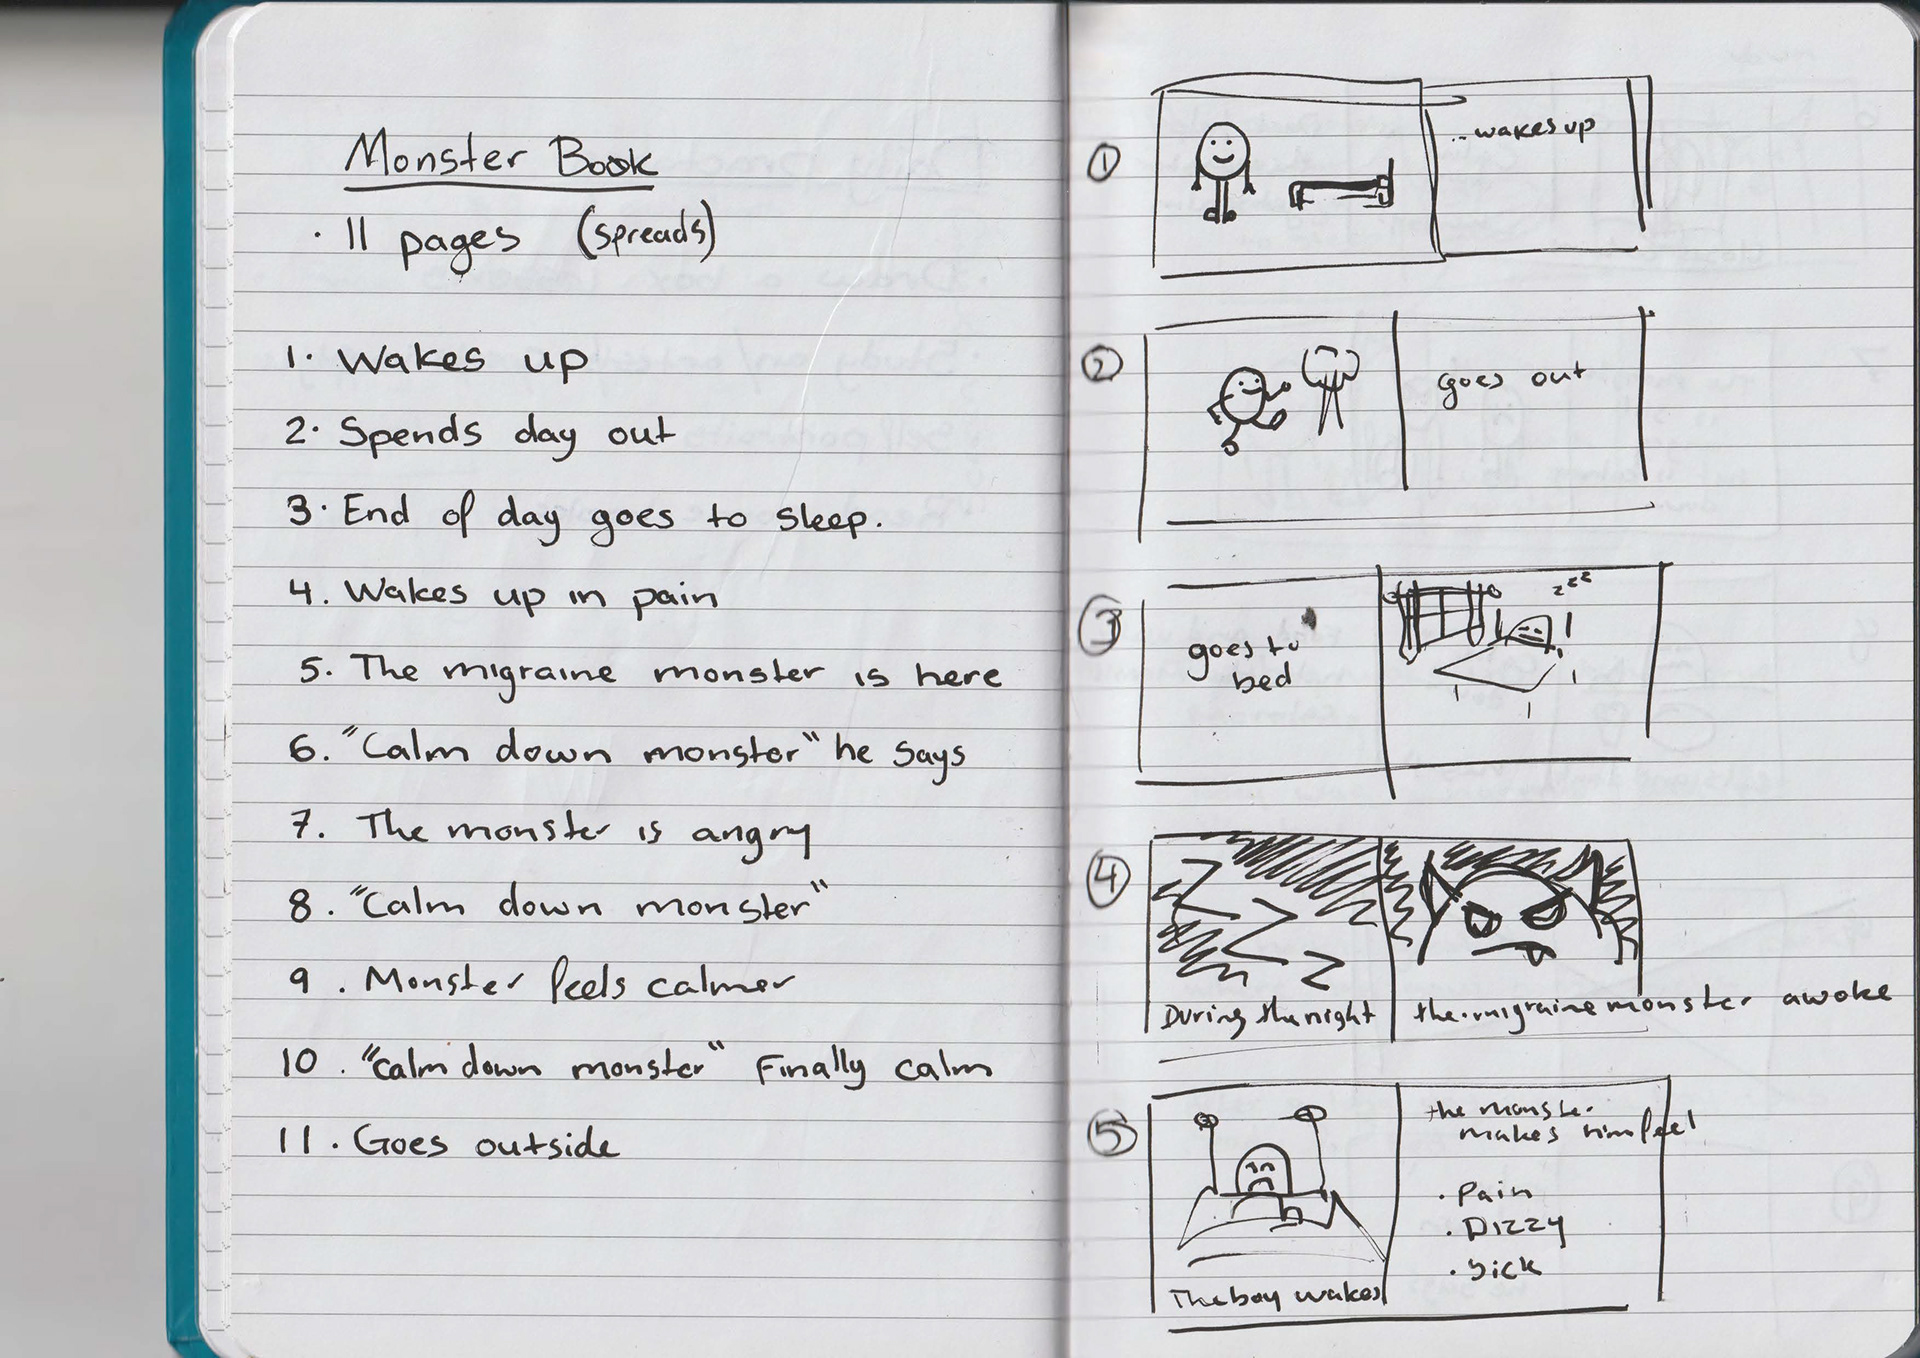 Monster Book
· 11 pages (spreads)
1. Wakes up
2. Spends day out
3. End of day goes to sleep.
4. Wakes up in pain
5. The migraine monster is here
6. "Calm down monster" he says
7. The monster is angry
8. "Calm down monster"
9. Monster feels calmer
10. "Calm down monster" Finally calm
11. Goes outside
1
...wakes up
2
goes out
3
goes to
bed
zzz
4
Z Z Z
During the night
the migraine monster awoke
5
The boy wakes
the monster
makes him feel
· Pain
· Dizzy
· Sick